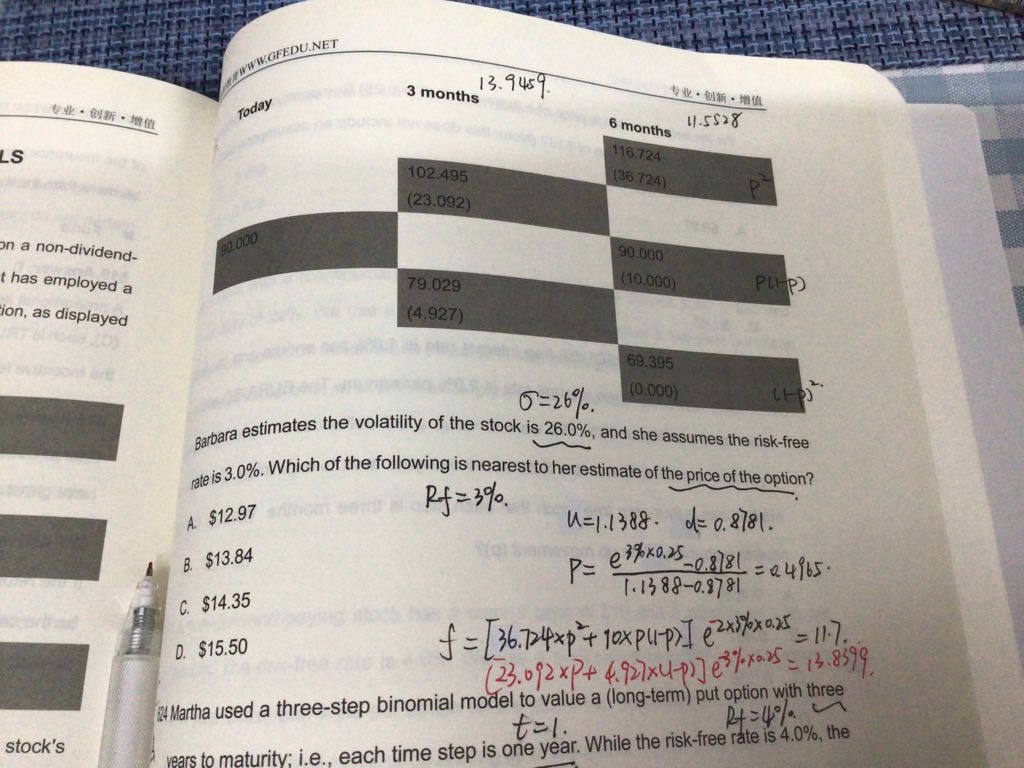 WWW.GFEDU.NET
专业·创新·增值
专业·创新·增值
LS
on a non-dividend-
t has employed a
tion, as displayed
stock's
Today
3 months
13.9459.
6 months
11.5528
116.724
(36.724)
p²
102.495
(23.092)
90.000
90.000
(10.000)
P(1-p)
79.029
(4.927)
69.395
(0.000)
(1-p)²
σ=26%.
Barbara estimates the volatility of the stock is 26.0%, and she assumes the risk-free
rate is 3.0%. Which of the following is nearest to her estimate of the price of the option?
Rf=3%.
A. $12.97
B. $13.84
C. $14.35
D. $15.50
u=1.1388. d=0.8781.
P= e^3%×0.25 -0.8781 / 1.1388-0.8781 =0.4965.
f=[36.724×p²+10×P(1-p)] e^-2×3%×0.25 =11.7.
[23.092×P+4.927×(1-p)] e^-3%×0.25 =13.8399.
624 Martha used a three-step binomial model to value a (long-term) put option with three
t=1.
Rf=4%.
years to maturity; i.e., each time step is one year. While the risk-free rate is 4.0%, the